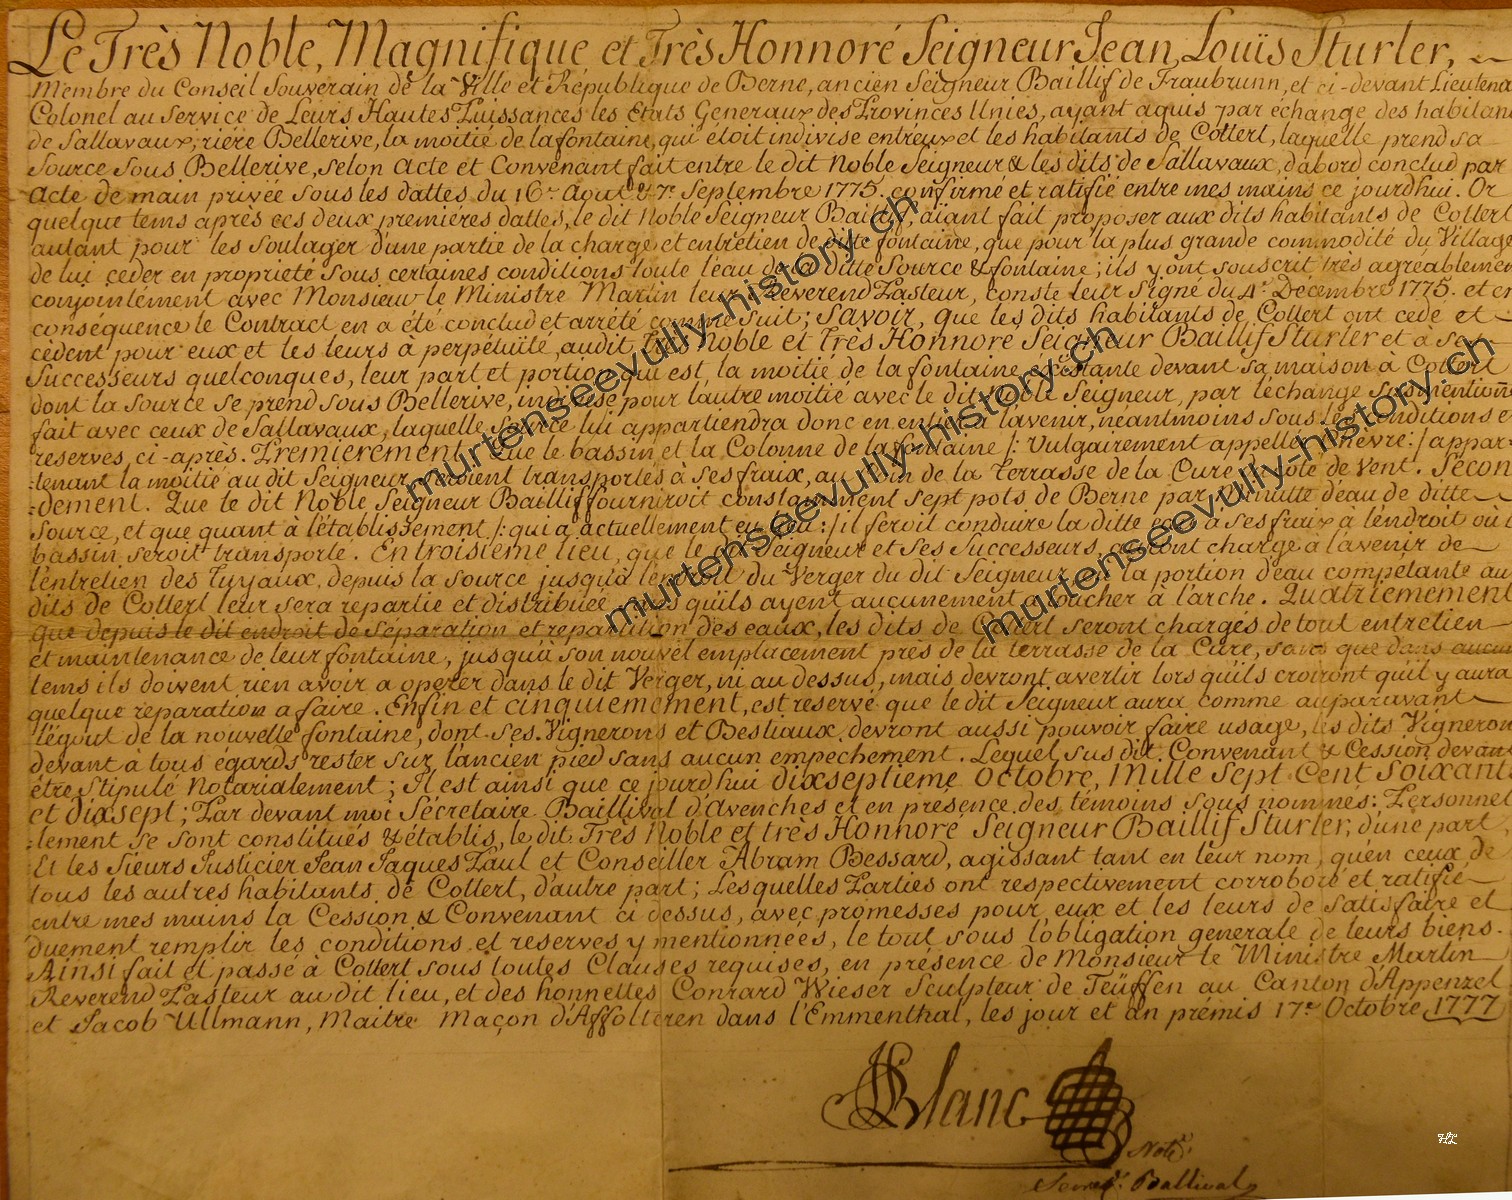 Le Très Noble, Magnifique et Très Honnoré Seigneur Jean Louïs Sturler,
Membre du Conseil Souverain de la Ville et République de Berne, ancien Seigneur Baillif de Fraubrunn, et ci-devant Lieutena
Colonel au Service de Leurs Hautes Puissances les Etats Generaux des Provinces Unies, ayant aquis par échange des habitan
de Sallavaux, riére Bellerive, la moitié de la fontaine, qui étoit indivise entreux et les habitants de Cotterl, laquelle prend sa
source sous Bellerive, selon Acte et Convenant fait entre le dit Noble Seigneur & les dits de Sallavaux, d'abord conclud par
Acte de main privée sous les dattes du 16e Aout & 7e Septembre 1775. confirmé et ratifié entre mes mains ce jourdhui. Or
quelque tems après ces deux premières dattes, le dit Noble Seigneur Baillif, aïant fait proposer aux dits habitants de Cotterl
autant pour les soulager d'une partie de la charge et entretien de ditte fontaine, que pour la plus grande commodité du Village
de lui céder en proprieté sous certaines conditions toute l'eau de la ditte Source & fontaine; ils y ont souscrit très agréablemen
conjointement avec Monsieur le Ministre Martin leur Reverend Pasteur, conste leur Signé du 4e Decembre 1775. et en
conséquence le Contract en a été conclud et arrété comme suit; Savoir, que les dits habitants de Cotterl ont cédé et
cèdent pour eux et les leurs à perpétuïté, audit Très Noble et Très Honnoré Seigneur Baillif Sturler et à ses
Successeurs quelconques, leur part et portion qui est, la moitié de la fontaine existante devant sa maison à Cotterl
dont la source se prend sous Bellerive, indivise pour l'autre moitié avec le dit Noble Seigneur, par l'échange susmentionn
fait avec ceux de Sallavaux, laquelle source lui appartiendra donc en entier à l'avenir, néantmoins sous les conditions e
reserves, ci-après. Premierement, Que le bassin et la Colonne de la fontaine /: Vulgairement appellée chevre :/ appar-
-tenant la moitié au dit Seigneur, seroient transportés à ses fraix, au coin de la Terrasse de la Cure, côté de Vent. Sécon
-dement. Que le dit Noble Seigneur Baillif fourniroit constamment sept pots de Berne par minutte d'eau de ditte
Source, et que quant à l'établissement /: qui a actuellement eu lieu :/ il feroit conduire la ditte eau à ses fraix à l'endroit où l
bassin seroit transporté. En troisième lieu, que le dit Seigneur et ses Successeurs, auront charge à l'avenir de
l'entretien des Tuyaux, depuis la source jusqu'à l'endroit du Verger du dit Seigneur, où la portion d'eau compétante au
dits de Cotterl leur sera repartie et distribuée, sans qu'ils ayent aucunement a toucher à l'arche. Quatriemement
que depuis le dit endroit de séparation et repartition des eaux, les dits de Cotterl seront chargés de tout entretien
et maintenance de leur fontaine, jusqu'à son nouvel emplacement près de la terrasse de la Cure, sans que dans aucun
tems ils doivent rien avoir a opérer dans le dit Verger, ni au dessus, mais devront avertir lors qu'ils croiront qu'il y aura
quelque réparation a faire. Enfin et cinquiemement, est reservé que le dit Seigneur aura comme auparavant
l'égout de la nouvelle fontaine, dont ses Vignerons et Bestiaux, devront aussi pouvoir faire usage, les dits Vigneron
devant à tous égards rester sur l'ancien pied sans aucun empechement. Lequel sus dit Convenant & Cession devan
être stipulé Notarialement; Il est ainsi que ce jourdhui dixseptieme Octobre, Mille Sept Cent Soixant
et dixsept; Par devant moi Sécretaire Baillival d'Avenches et en présence des témoins sous nommés: Personnel
-lement se sont constitués & établis, le dit Très Noble et très Honnoré Seigneur Baillif Sturler, d'une part
Et les Sieurs Justicier Jean Jaques Paul et Conseiller Abram Bessard, agissant tant en leur nom, qu'en ceux de
tous les autres habitants de Cotterl, d'autre part; Lesquelles Parties ont respectivement corroboré et ratifié
entre mes mains la Cession & Convenant ci dessus, avec promesses pour eux et les leurs de satisfaire et
duement remplir les conditions et reserves y mentionnées, le tout sous l'obligation generale de leurs biens.
Ainsi fait et passé à Cotterl sous toutes Clauses requises, en présence de Monsieur le Ministre Martin
Reverend Pasteur au dit lieu, et des honnettes Conrard Wieser Sculpteur de Teüffen au Canton d'Appenzel
et Jacob Ullmann, Maitre Maçon d'Affolteren dans l'Emmenthal, les jour et an prémis 17e Octobre 1777
Blanc
Notr.
Secret. Ballival
murtenseevully-history.ch
murtenseevully-history.ch
murtenseevully-history.ch